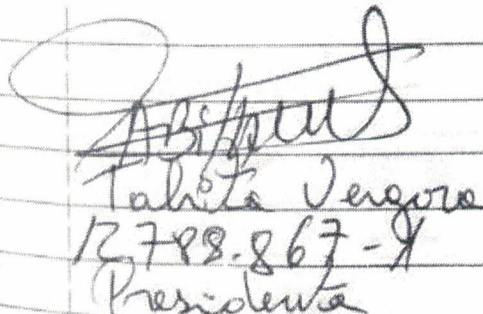 Tabita Vergara
12.788.867-9
Presidenta